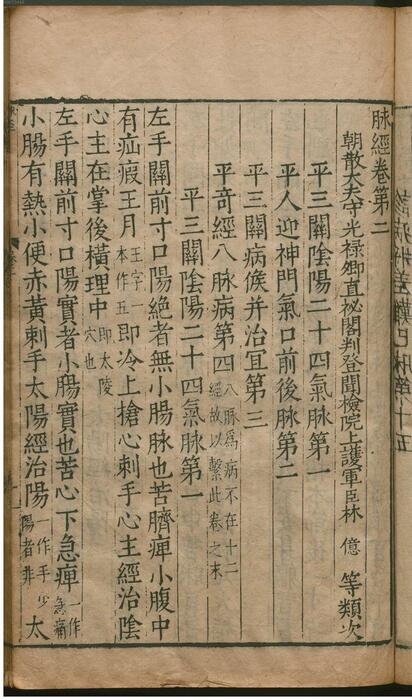 脉經卷第二
朝散大夫守光禄卿直祕閣判登聞檢院上護軍臣林 億 等類次
平三關陰陽二十四氣脉第一
平人迎神門氣口前後脉第二
平三關病𠊱并治宜第三
平奇經八脉病第四八脉爲病不在十二經故以繫此卷之末
平三關陰陽二十四氣脉第一
左手關前寸口陽絶者無小腸脉也苦臍痺小腹中
有疝瘕王月王字一本作五即冷上搶心刺手心主經治陰
心主在掌後橫理中即太陵穴也
左手關前寸口陽實者小腸實也苦心下急痺一作急痛
小腸有熱小便赤黃刺手太陽經治陽一作手少陽者非太